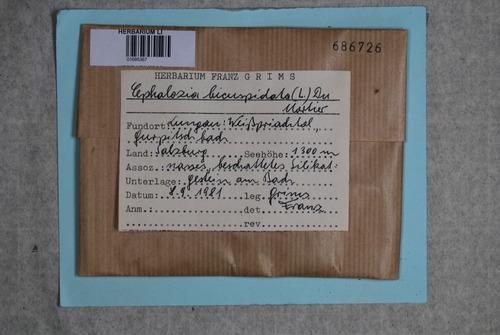 HERBARIUM LI
686726
HERBARIUM FRANZ GRIMS
Cephalozia bicuspidata (L.) Du
Mortier
Fundort: Lungau: Weißpriachtal,
bach
Land: Salzburg Seehöhe: 1300 m
Assoz.: nasses, beschattetes Silikat-
Unterlage: gestein am Bach
Datum: 8.9. 1981 leg. Grims
Anm.: det. Franz
rev.